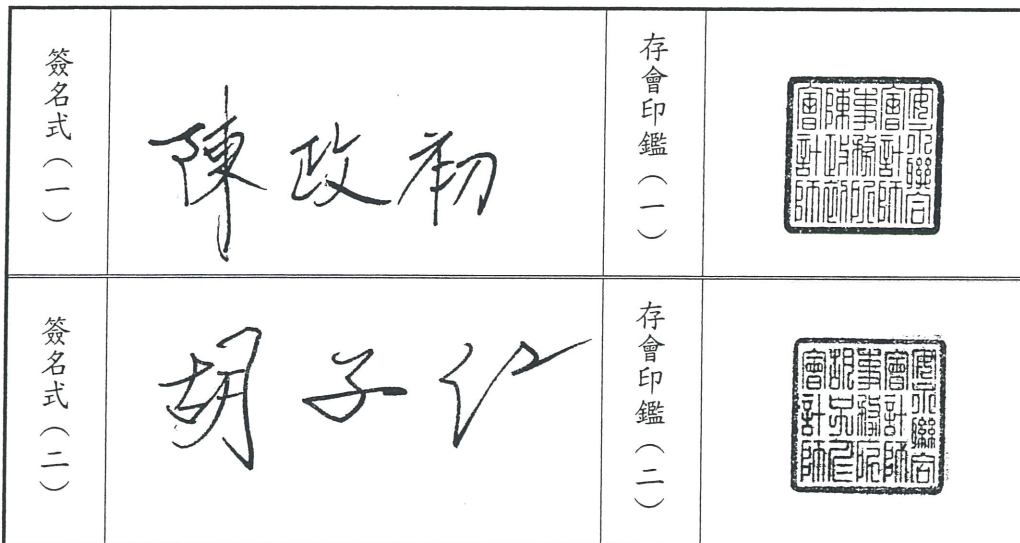 簽名式（一）
陳政初
存會印鑑（一）
安永聯合
會計師
事務所
陳政初
會計師
簽名式（二）
胡子仁
存會印鑑（二）
安永聯合
會計師
事務所
胡子仁
會計師